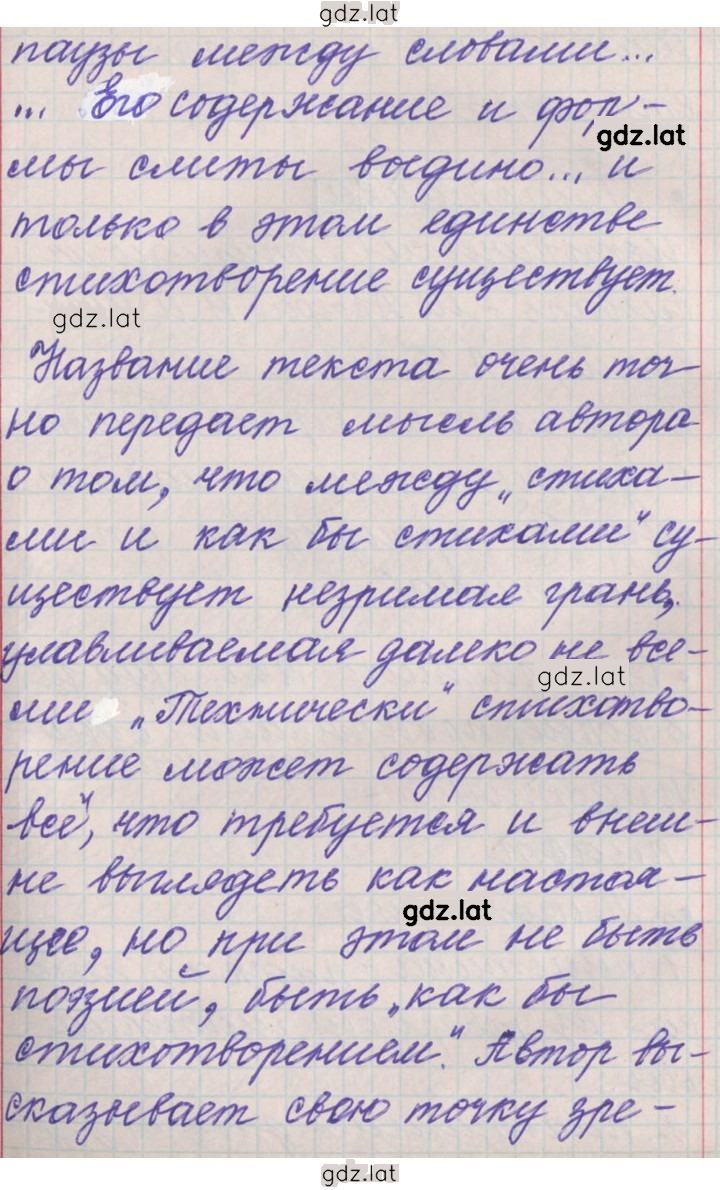 gdz.lat
паузы между словами...
... Его содержание и фор-
gdz.lat
мы слиты выдино... и
только в этом единстве
стихотворение существует.
gdz.lat
Название текста очень точ-
но передает мысль автора
о том, что между „стиха-
ми и как бы стихами“ су-
ществует незримая грань,
улавливаемая далеко не все-
gdz.lat
ми „Технически“ стихотво-
рение может содержать
всё, что требуется и внеш-
не выглядеть как настоя-
gdz.lat
щее, но при этом не быть
поэзией, быть „как бы
стихотворением“. Автор вы-
сказывает свою точку зре-
gdz.lat